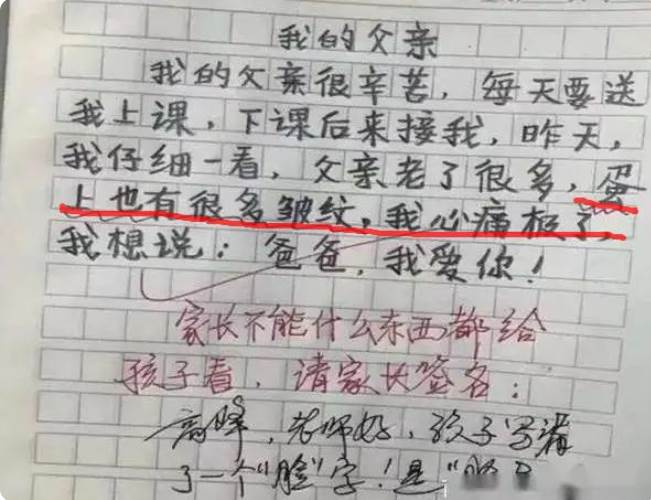 我的父亲
我的父亲很辛苦，每天要送
我上课，下课后来接我，昨天，
我仔细一看，父亲老了很多，蛋
上也有很多皱纹，我心痛极了，
我想说：爸爸，我爱你！
家长不能什么东西都给
孩子看，请家长签名：
高峰，老师好，孩子写错
了一个“脸”字！是“